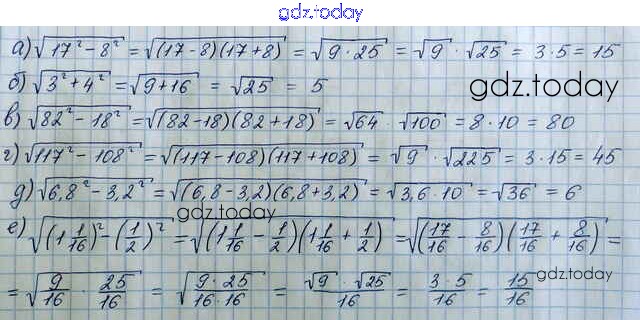 gdz.today
а) √(17² − 8²) = √((17 − 8)(17 + 8)) = √(9 · 25) = √9 · √25 = 3 · 5 = 15
б) √(3² + 4²) = √(9 + 16) = √25 = 5
gdz.today
в) √(82² − 18²) = √((82 − 18)(82 + 18)) = √64 · √100 = 8 · 10 = 80
г) √(117² − 108²) = √((117 − 108)(117 + 108)) = √9 · √225 = 3 · 15 = 45
д) √(6,8² − 3,2²) = √((6,8 − 3,2)(6,8 + 3,2)) = √(3,6 · 10) = √36 = 6
gdz.today
е) √((1 1/16)² − (1/2)²) = √((1 1/16 − 1/2)(1 1/16 + 1/2)) = √((17/16 − 8/16)(17/16 + 8/16)) =
= √(9/16 · 25/16) = √((9 · 25)/(16 · 16)) = (√9 · √25)/16 = (3 · 5)/16 = 15/16
gdz.today